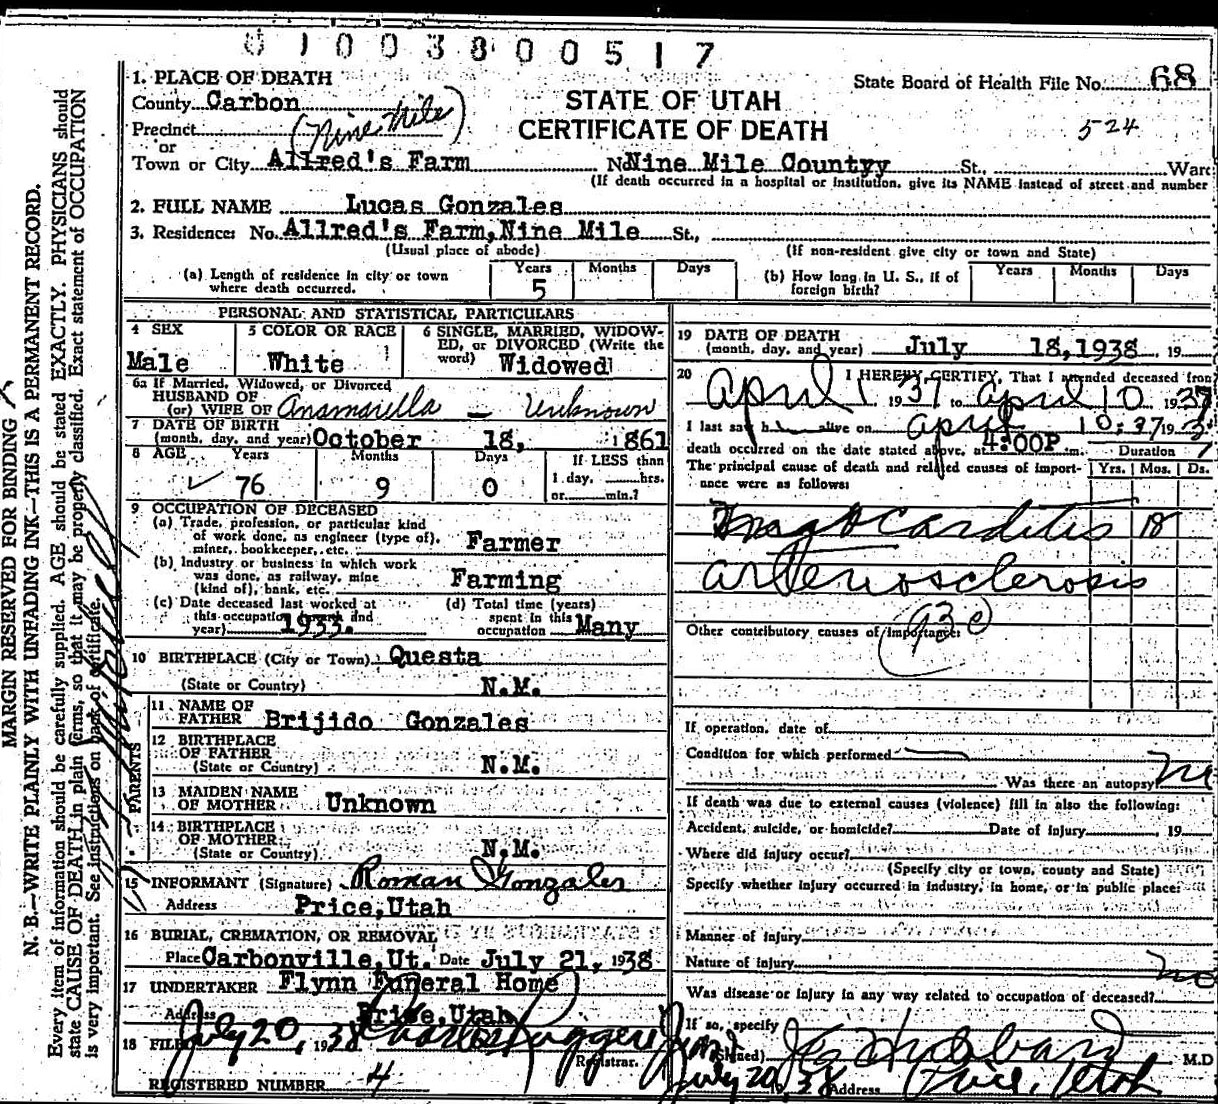 0 1 0 0 3 8 0 0 5 1 7
State Board of Health File No. 68
STATE OF UTAH
CERTIFICATE OF DEATH
524
1. PLACE OF DEATH
County Carbon
Precinct (Nine Mile)
or
Town or City Allred's Farm No Nine Mile Countyy St., Ward
(If death occurred in a hospital or institution, give its NAME instead of street and number
2. FULL NAME Lucas Gonzales
3. Residence: No. Allred's Farm, Nine Mile St.,
(Usual place of abode) (If non-resident give city or town and State)
(a) Length of residence in city or town where death occurred. Years 5 Months Days
(b) How long in U. S., if of foreign birth? Years Months Days
PERSONAL AND STATISTICAL PARTICULARS
4 SEX Male
5 COLOR OR RACE White
6 SINGLE, MARRIED, WIDOWED, or DIVORCED (Write the word) Widowed
6a If Married, Widowed, or Divorced
HUSBAND OF
(or) WIFE OF Anamarella - Unknown
7 DATE OF BIRTH
(month, day, and year) October 18, 1861
8 AGE Years 76 Months 9 Days 0
If LESS than
1 day, hrs.
or min.?
9 OCCUPATION OF DECEASED
(a) Trade, profession, or particular kind
of work done, as engineer (type of),
miner, bookkeeper, etc. Farmer
(b) Industry or business in which work
was done, as railway, mine
(kind of), bank, etc. Farming
(c) Date deceased last worked at
this occupation (month and
year) 1933.
(d) Total time (years)
spent in this
occupation Many
10 BIRTHPLACE (City or Town) Questa
(State or Country) N.M.
PARENTS
11 NAME OF
FATHER Brijido Gonzales
12 BIRTHPLACE
OF FATHER
(State or Country) N.M.
13 MAIDEN NAME
OF MOTHER Unknown
14 BIRTHPLACE
OF MOTHER
(State or Country) N.M.
15 INFORMANT (Signature) Roman Gonzales
Address Price, Utah
16 BURIAL, CREMATION, OR REMOVAL
Place Carbonville, Ut. Date July 21, 1938
17 UNDERTAKER Flynn Funeral Home
Address Price, Utah
18 FILED July 20, 1938 Charles Ruggeri
Registrar.
REGISTERED NUMBER 4
19 DATE OF DEATH
(month, day, and year) July 18, 1938, 19
20 I HEREBY CERTIFY, That I attended deceased from
April 1 1937 to April 10 1937
I last saw h alive on April 10, 37 19
death occurred on the date stated above, at 4:00P m.
The principal cause of death and related causes of importance were as follows:
Duration
Yrs. Mos. Ds.
Myocarditis 18
Arteriosclerosis
Other contributory causes of importance:
If operation, date of
Condition for which performed
Was there an autopsy? no
If death was due to external causes (violence) fill in also the following:
Accident, suicide, or homicide? Date of injury , 19
Where did injury occur?
(Specify city or town, county and State)
Specify whether injury occurred in industry, in home, or in public place:
Manner of injury
Nature of injury
Was disease or injury in any way related to occupation of deceased? no
If so, specify
(Signed) Hubbard M.D
July 20, 38 Address Price, Utah
MARGIN RESERVED FOR BINDING
N. B.—WRITE PLAINLY WITH UNFADING INK—THIS IS A PERMANENT RECORD.
Every item of information should be carefully supplied. AGE should be stated EXACTLY. PHYSICIANS should
state CAUSE OF DEATH in plain terms, so that it may be properly classified. Exact statement of OCCUPATION
is very important. See instructions on back of certificate.